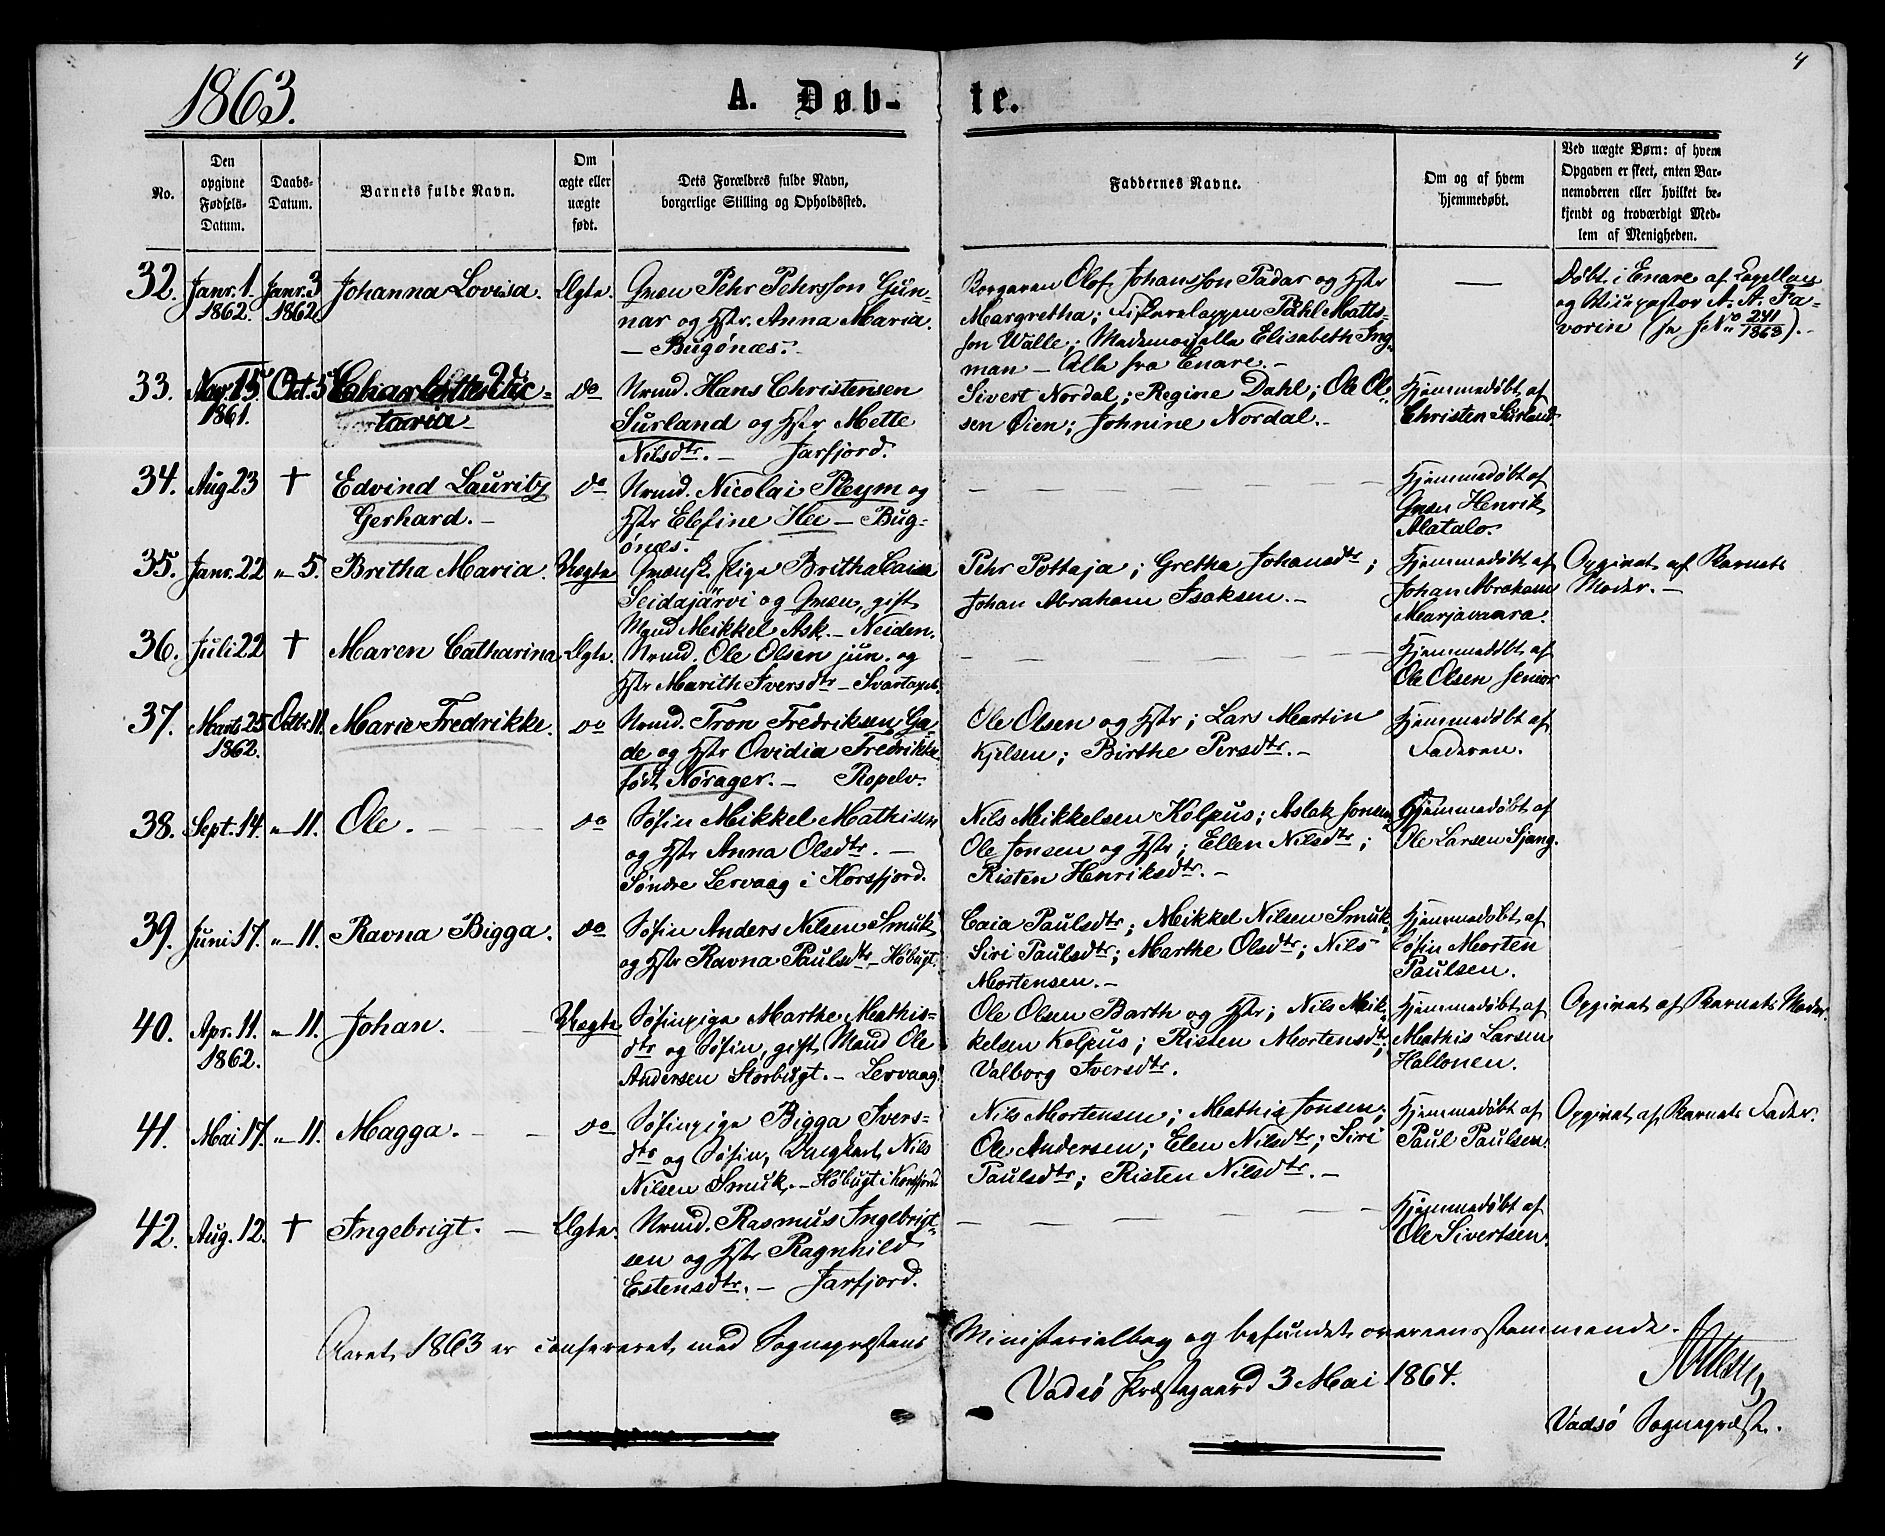 4
1863.
A. Døb-
te.
No.
Den
opgivne
Fødsels-
Datum.
Daabs-
Datum.
Barnets fulde Navn.
Om
ægte eller
uægte
født.
Dets Forældres fulde Navn,
borgerlige Stilling og Opholdssted.
Faddernes Navne.
Om og af hvem
hjemmedøbt.
Ved uægte Børn: af hvem
Opgaven er skeet, enten Bar-
nemoderen eller hvilket be-
kjendt og troværdigt Med-
lem af Menigheden.
32.
Janr. 1.
1862.
Janr. 3
1862
Johanna Lovisa.
Ægte.
Qvæn Pehr Pehrsson Gun-
nar og Hstr. Anna Maria.
— Bugønæs.
Borgaren Olof Johansson Padar og Hstr
Margretha; Fiskerelappen Påhl Matts-
son Wälle; Mademoiselle Elisabeth Ing-
man — Alle fra Enare.—
—
Døbt i Enare af Capellan
og Vicepastor A. A. Fa-
vorin (se J.No 241/1863).—
33.
Nov. 15
1861.
Oct. 5
Vic-
toria
do
Nrmd. Hans Christensen
Surland og Hstr Mette
Nilsdtr. — Jarfjord.
Sivert Nordal; Regine Dahl; Ole Ol-
sen Øien; Johnine Nordal.—
Hjemmedøbt af
Christen Surland
34.
Aug 23
†
Edvind Lauritz
Gerhard.—
do
Nrmd. Nicolai Pleym og
Hstr Elefine Hee — Bug-
ønæs.
Hjemmedøbt af
Qvæn Henrik
Alatalo.
35.
Janr. 22
" 5.
Britha Maria.
Uægte
Qvænsk Pige Britha Caisa
Seidajärvi og Qvæn, gift
Mand Mikkel Ask. — Neiden.
Pehr Pottaja; Gretha Johansdtr;
Johan Abraham Isaksen.—
Hjemmedøbt af
Johan Abraham
Marjavaara.
Opgivet af Barnets
Moder.—
36.
Juli 22
†
Maren Catharina
Ægte.
Nrmd. Ole Olsen jun. og
Hstr Marith Iversdtr —
Hjemmedøbt af
Ole Olsen senior
37.
Marts 25
1862.
Octbr 11.
Marie Fredrikke.
do
Nrmd. Tron Fredriksen Ga-
de og Hstr Ovidia Fredrikke
født Nørager.— Ropelv.
Ole Olsen og Hstr; Lars Martin
Kjelsen; Birthe Persdtr.—
Hjemmedøbt af
Faderen.
38.
Sept. 14.
" 11.
Ole.
do
Søfin Mikkel Mathisen
og Hstr Anna Olsdtr.—
Søndre Lervaag i Korsfjord.
Nils Mikkelsen Kolpus; Aslak Jonsen;
Ole Jonsen og Hstr; Ellen Nilsdtr;
Risten Henriksdtr.—
Hjemmedøbt af
Ole Larsen Sjang.
39.
Juni 17.
" 11.
Ravna Bigga.
do
Søfin Anders Nilsen Smuk
og Hstr Ravna Paulsdtr — Høbugt.
Caia Paulsdtr; Mikkel Nilsen Smuk;
Siri Paulsdtr; Marthe Olsdtr; Nils
Mortensen.—
Hjemmedøbt af
Søfin Morten
Paulsen.
40.
Apr. 11.
1862.
" 11.
Johan.
Uægte
Søfinpige Marthe Mathis-
dtr og Søfin, gift Mand Ole
Andersen Storbugt.— Lervaag.
Ole Olsen Barth og Hstr; Nils Mik-
kelsen Kolpus; Risten Mortensdtr;
Valborg Iversdtr.
Hjemmedøbt af
Mathis Larsen
Hallonen.
Opgivet af Barnets Moder.
41.
Mai 17.
" 11.
Magga.
do
Søfinpige Bigga Ivers-
dtr og Søfin, Ungkarl, Nils
Nilsen Smuk.— Høbugt i Korsfjord
Nils Mortensen; Mathis Jonsen;
Ole Andersen; Elen Nilsdtr; Siri
Paulsdtr; Risten Nilsdtr.—
Hjemmedøbt af
Paul Paulsen.
Opgivet af Barnets Fader.
42.
Aug. 12.
†
Ingebrigt.
Ægte.
Nrmd. Rasmus Ingebrigt-
sen og Hstr Ragnhild
Estensdtr.— Jarfjord.
Hjemmedøbt af
Ole Sivertsen.
Aaret 1863 er confereret med Sognepræstens Ministerialbog og befundet overeensstemmende.
Vadsø Præstegaard 3 Mai 1864.
Vadsø Sognepræst.